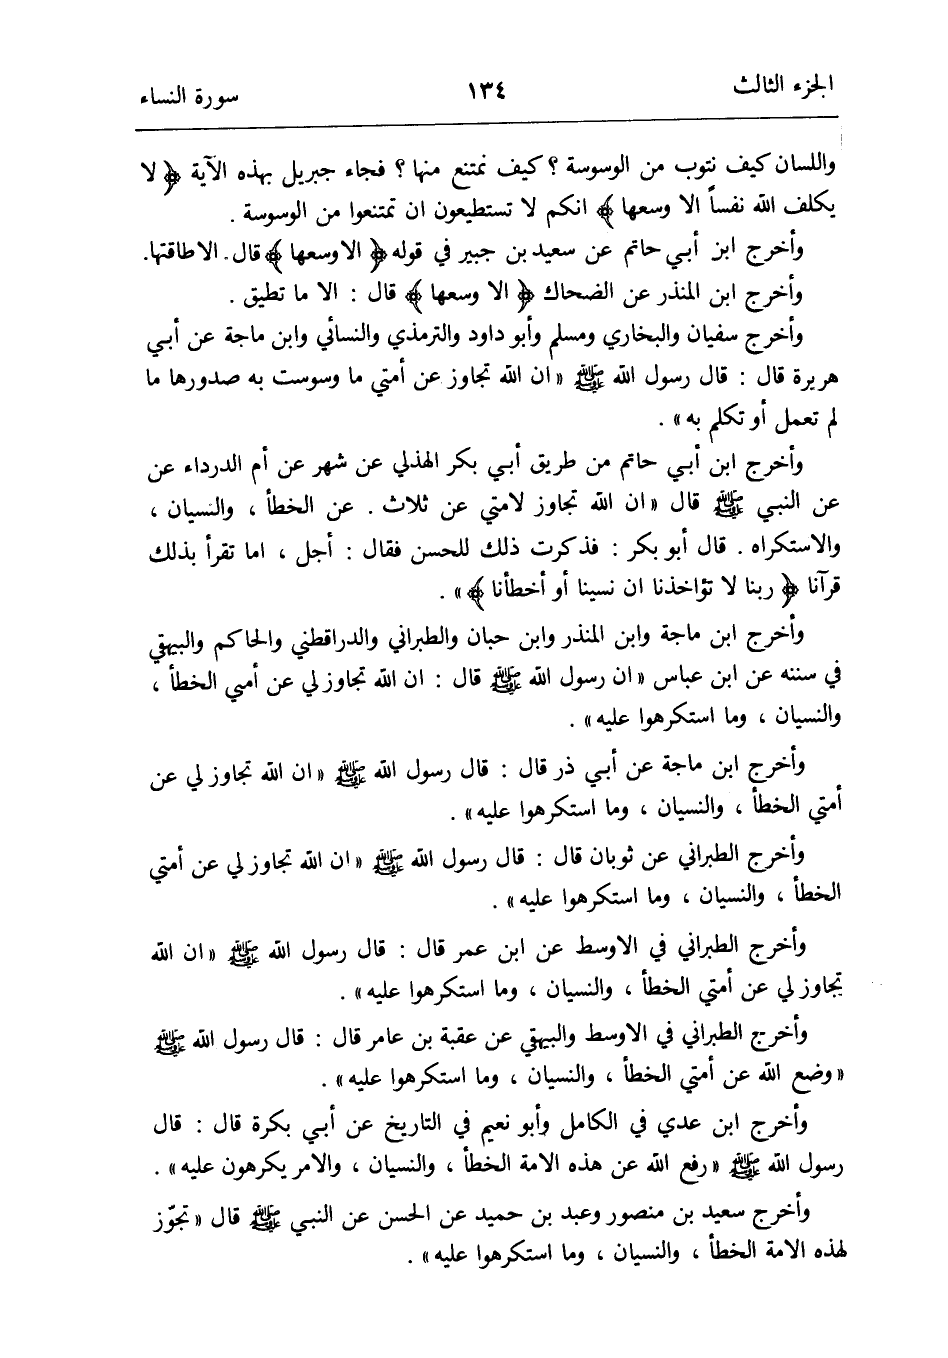 الجزء الثالث ١٣٤ سورة النساء
واللسان كيف نتوب من الوسوسة ؟ كيف نمتنع منها ؟ فجاء جبريل بهذه الآية ﴿ لا
يكلف الله نفساً الا وسعها ﴾ انكم لا تستطيعون ان تمتنعوا من الوسوسة .
وأخرج ابن أبي حاتم عن سعيد بن جبير في قوله ﴿ الا وسعها ﴾ قال . الا طاقتها.
وأخرج ابن المنذر عن الضحاك ﴿ الا وسعها ﴾ قال : الا ما تطيق .
وأخرج سفيان والبخاري ومسلم وأبو داود والترمذي والنسائي وابن ماجة عن أبي
هريرة قال : قال رسول الله ﷺ « ان الله تجاوز عن أمتي ما وسوست به صدورها ما
لم تعمل أو تكلم به » .
وأخرج ابن أبي حاتم من طريق أبي بكر الهذلي عن شهر عن أم الدرداء عن
عن النبي ﷺ قال « ان الله تجاوز لامتي عن ثلاث . عن الخطأ ، والنسيان ،
والاستكراه . قال أبو بكر : فذكرت ذلك للحسن فقال : أجل ، اما تقرأ بذلك
قرآنا ﴿ ربنا لا تؤاخذنا ان نسينا أو أخطأنا ﴾ » .
وأخرج ابن ماجة وابن المنذر وابن حبان والطبراني والدراقطني والحاكم والبيهقي
في سننه عن ابن عباس « ان رسول الله ﷺ قال : ان الله تجاوز لي عن أمتي الخطأ ،
والنسيان ، وما استكرهوا عليه » .
وأخرج ابن ماجة عن أبي ذر قال : قال رسول الله ﷺ « ان الله تجاوز لي عن
أمتي الخطأ ، والنسيان ، وما استكرهوا عليه » .
وأخرج الطبراني عن ثوبان قال : قال رسول الله ﷺ « ان الله تجاوز لي عن أمتي
الخطأ ، والنسيان ، وما استكرهوا عليه » .
وأخرج الطبراني في الاوسط عن ابن عمر قال : قال رسول الله ﷺ « ان الله
تجاوز لي عن أمتي الخطأ ، والنسيان ، وما استكرهوا عليه » .
وأخرج الطبراني في الاوسط والبيهقي عن عقبة بن عامر قال : قال رسول الله ﷺ
« وضع الله عن أمتي الخطأ ، والنسيان ، وما استكرهوا عليه » .
وأخرج ابن عدي في الكامل وأبو نعيم في التاريخ عن أبي بكرة قال : قال
رسول الله ﷺ « رفع الله عن هذه الامة الخطأ ، والنسيان ، والامر يكرهون عليه » .
وأخرج سعيد بن منصور وعبد بن حميد عن الحسن عن النبي ﷺ قال « تجوّز
لهذه الامة الخطأ ، والنسيان ، وما استكرهوا عليه » .